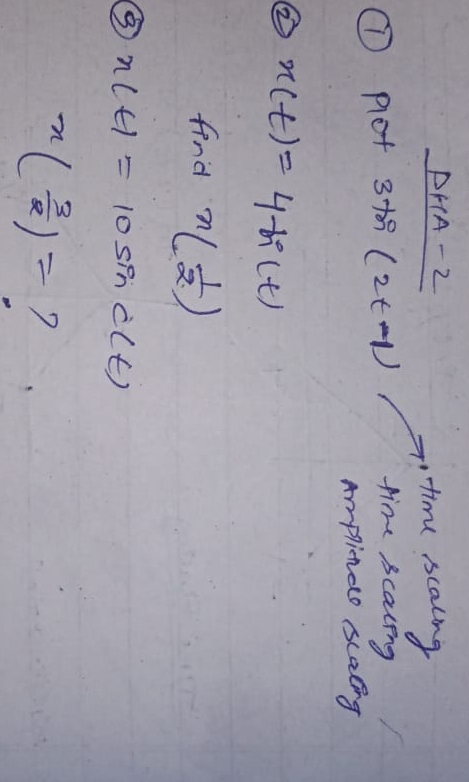 DHA-2
① Plot 3tri (2t-1) → time scaling
time scaling /
Amplitude scaling
② x(t) = 4tri(t)
find x(1/2)
③ x(t) = 10 sin c(t)
x(3/2) = ?